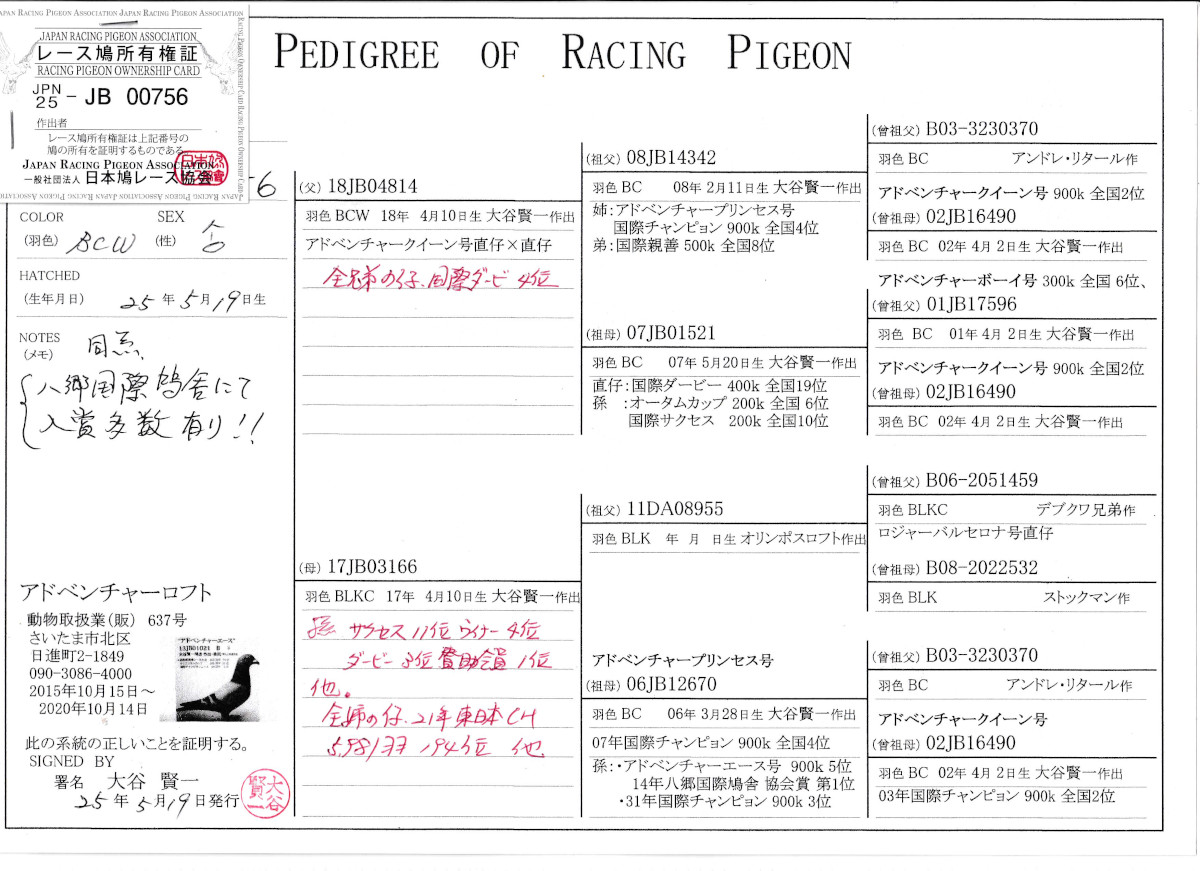 JAPAN RACING PIGEON ASSOCIATION
レース鳩所有権証
RACING PIGEON OWNERSHIP CARD
JPN
25 - JB 00756
作出者
レース鳩所有権証は上記番号の
鳩の所有を証明するものである
JAPAN RACING PIGEON ASSOCIATION
一般社団法人 日本鳩レース協会
PEDIGREE OF RACING PIGEON
-6
COLOR
(羽色) BCW
SEX
(性)
HATCHED
(生年月日) 25年5月19日生
NOTES
(メモ)
八郷国際鳩舎にて
入賞多数有り!!
アドベンチャーロフト
動物取扱業(販) 637号
さいたま市北区
日進町2-1849
090-3086-4000
2015年10月15日～
2020年10月14日
"アドベンチャーエース"
此の系統の正しいことを証明する。
SIGNED BY
署名 大谷 賢一
25年5月19日発行
大谷賢一
(父) 18JB04814
羽色 BCW 18年 4月10日生 大谷賢一作出
アドベンチャークイーン号直仔×直仔
全兄弟の仔、国際ダービー4位
(母) 17JB03166
羽色 BLKC 17年 4月10日生 大谷賢一作出
孫 サクセス11位 ウイナー4位
ダービー3位 賛助会員1位
他。
全姉の仔、21年東日本CH
5,981羽 194位 他
(祖父) 08JB14342
羽色 BC 08年 2月11日生 大谷賢一作出
姉：アドベンチャープリンセス号
国際チャンピオン 900k 全国4位
弟：国際親善 500k 全国8位
(祖母) 07JB01521
羽色 BC 07年 5月20日生 大谷賢一作出
直仔：国際ダービー 400k 全国19位
孫 ：オータムカップ 200k 全国 6位
国際サクセス 200k 全国10位
(祖父) 11DA08955
羽色 BLK 年 月 日生 オリンポスロフト作出
アドベンチャープリンセス号
(祖母) 06JB12670
羽色 BC 06年 3月28日生 大谷賢一作出
07年国際チャンピオン 900k 全国4位
孫：・アドベンチャーエース号 900k 5位
14年八郷国際鳩舎 協会賞 第1位
・31年国際チャンピオン 900k 3位
(曾祖父) B03-3230370
羽色 BC アンドレ・リタール作
アドベンチャークイーン号 900k 全国2位
(曾祖母) 02JB16490
羽色 BC 02年 4月 2日生 大谷賢一作出
アドベンチャーボーイ号 300k 全国 6位、
(曾祖父) 01JB17596
羽色 BC 01年 4月 2日生 大谷賢一作出
アドベンチャークイーン号 900k 全国2位
(曾祖母) 02JB16490
羽色 BC 02年 4月 2日生 大谷賢一作出
(曾祖父) B06-2051459
羽色 BLKC デブクワ兄弟作
ロジャーバルセロナ号直仔
(曾祖母) B08-2022532
羽色 BLK ストックマン作
(曾祖父) B03-3230370
羽色 BC アンドレ・リタール作
アドベンチャークイーン号
(曾祖母) 02JB16490
羽色 BC 02年 4月 2日生 大谷賢一作出
03年国際チャンピオン 900k 全国2位